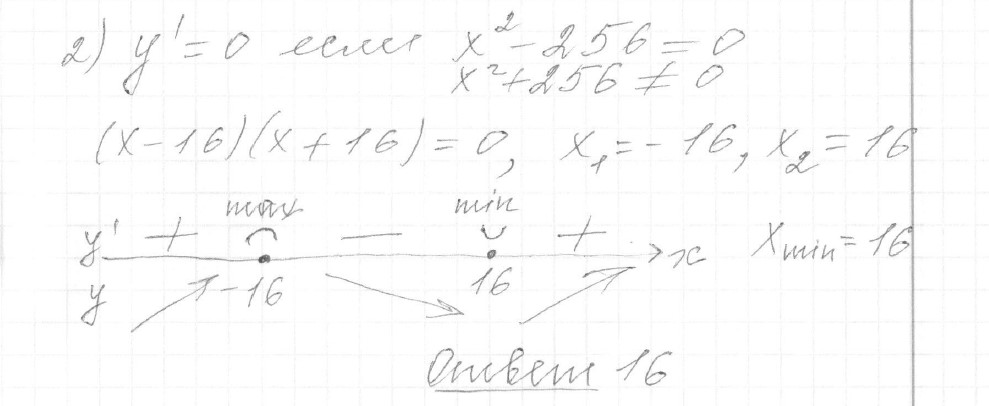 2) y' = 0 если x² - 256 = 0
x² + 256 ≠ 0
(x - 16)(x + 16) = 0, x₁ = - 16, x₂ = 16
max min
y' + - + x Xmin = 16
y -16 16
Ответ 16